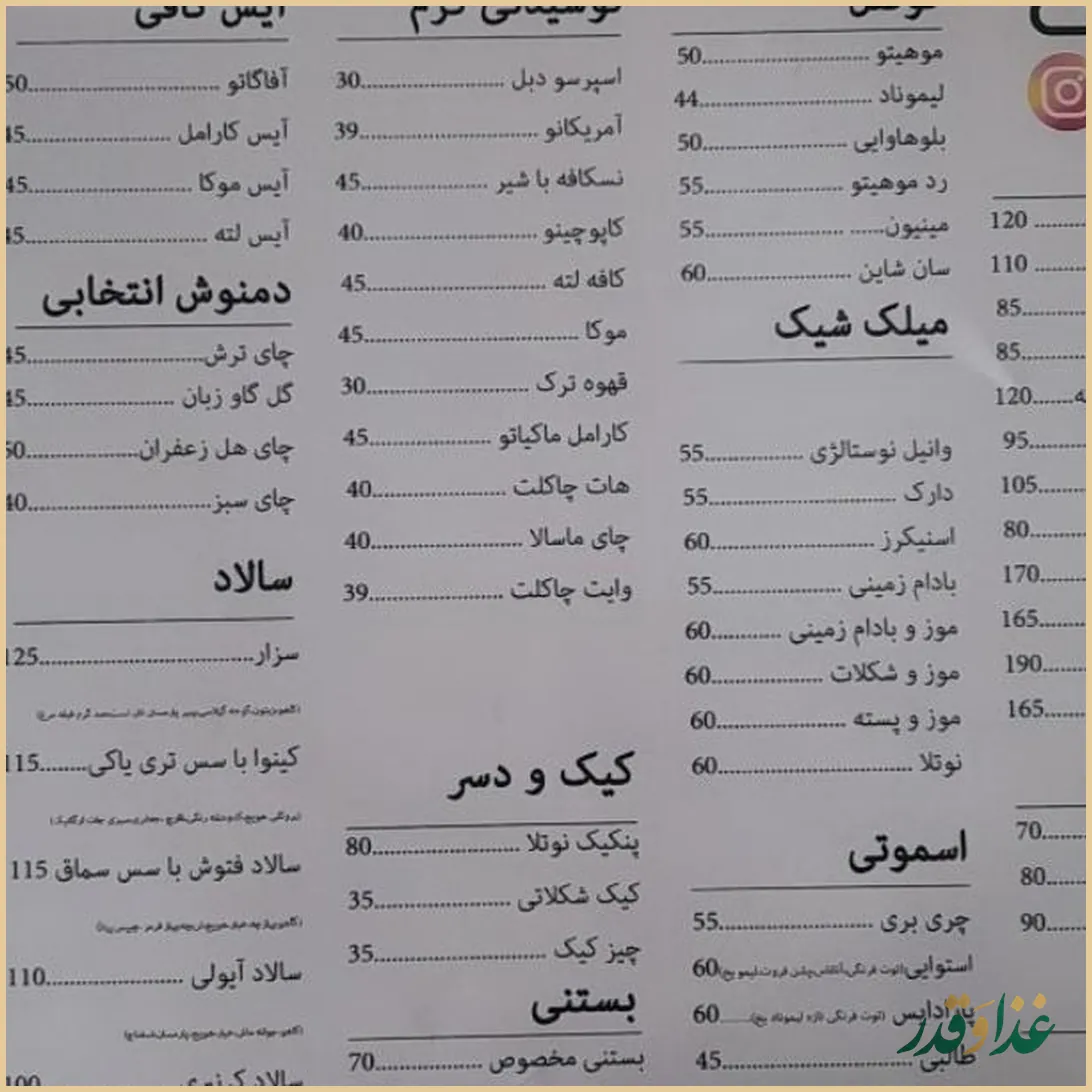 موهیتو ....... 50
لیموناد ....... 44
بلوهاوایی ....... 50
رد موهیتو ....... 55
مینیون ....... 55
سان شاین ....... 60
میلک شیک
وانیل نوستالژی ....... 55
دارک ....... 55
اسنیکرز ....... 60
بادام زمینی ....... 55
موز و بادام زمینی ....... 60
موز و شکلات ....... 60
موز و پسته ....... 60
نوتلا ....... 60
اسموتی
چری بری ....... 55
استوایی (توت فرنگی، آناناس، پشن فروت، لیمو یخ) 60
پارادایس (توت فرنگی تازه لیموناد یخ) ....... 60
طالبی ....... 45
نوشیدنی گرم
اسپرسو دبل ....... 30
آمریکانو ....... 39
نسکافه با شیر ....... 45
کاپوچینو ....... 40
کافه لته ....... 45
موکا ....... 45
قهوه ترک ....... 30
کارامل ماکیاتو ....... 45
هات چاکلت ....... 40
چای ماسالا ....... 40
وایت چاکلت ....... 39
کیک و دسر
پنکیک نوتلا ....... 80
کیک شکلاتی ....... 35
چیز کیک ....... 35
بستنی
بستنی مخصوص ....... 70
آیس کافی
آفاگاتو ....... 50
آیس کارامل ....... 45
آیس موکا ....... 45
آیس لته ....... 45
دمنوش انتخابی
چای ترش ....... 45
گل گاو زبان ....... 45
چای هل زعفران ....... 50
چای سبز ....... 40
سالاد
سزار ....... 125
کینوا با سس تری یاکی ....... 115
سالاد فتوش با سس سماق 115
سالاد آیولی ....... 110
سالاد ....... 100
120
110
85
85
120
95
105
80
170
165
190
165
70
80
90
غذا و قدر